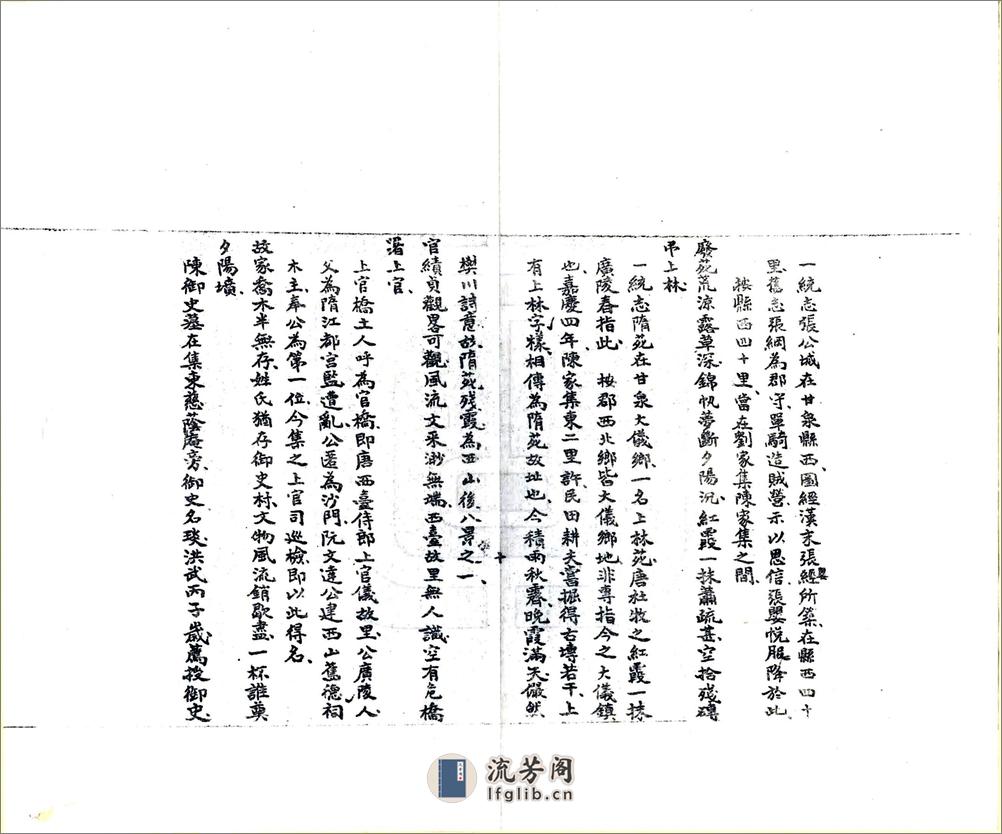 一統志張公城在甘泉縣西圖經漢末張嬰所築在縣西四十
里舊志張綱為郡守單騎造賊營示以恩信張嬰悅服降於此
按縣西四十里當在劉家集陳家集之間
廢苑荒涼露草深錦帆夢斷夕陽沉紅霞一抹蕭疏甚空拾殘磚
吊上林
一統志隋苑在甘泉大儀鄉一名上林苑唐杜牧之紅霞一抹
廣陵春指此 按郡西北鄉皆大儀鄉地非專指今之大儀鎮
也嘉慶四年陳家集東二里許民田耕夫嘗掘得古塼若干上
有上林字樣相傳為隋苑故址也今積雨秋霽晚霞滿天儼然
樊川詩意故隋苑殘霞為西山後八景之一
官績貞觀畧可觀風流文采渺無端西臺故里無人識空有危橋
署上官
上官橋土人呼為官橋即唐西臺侍郎上官儀故里公廣陵人
父為隋江都宮監遭亂公匿為沙門阮文達公建西山舊德祠
木主奉公為第一位今集之上官司巡檢即以此得名
故家喬木半無存姓氏猶存御史村文物風流銷歇盡一杯誰奠
夕陽墳
陳御史墓在集東慈蔭庵旁御史名琰洪武丙子歲薦授御史
流芳阁
lfglib.cn